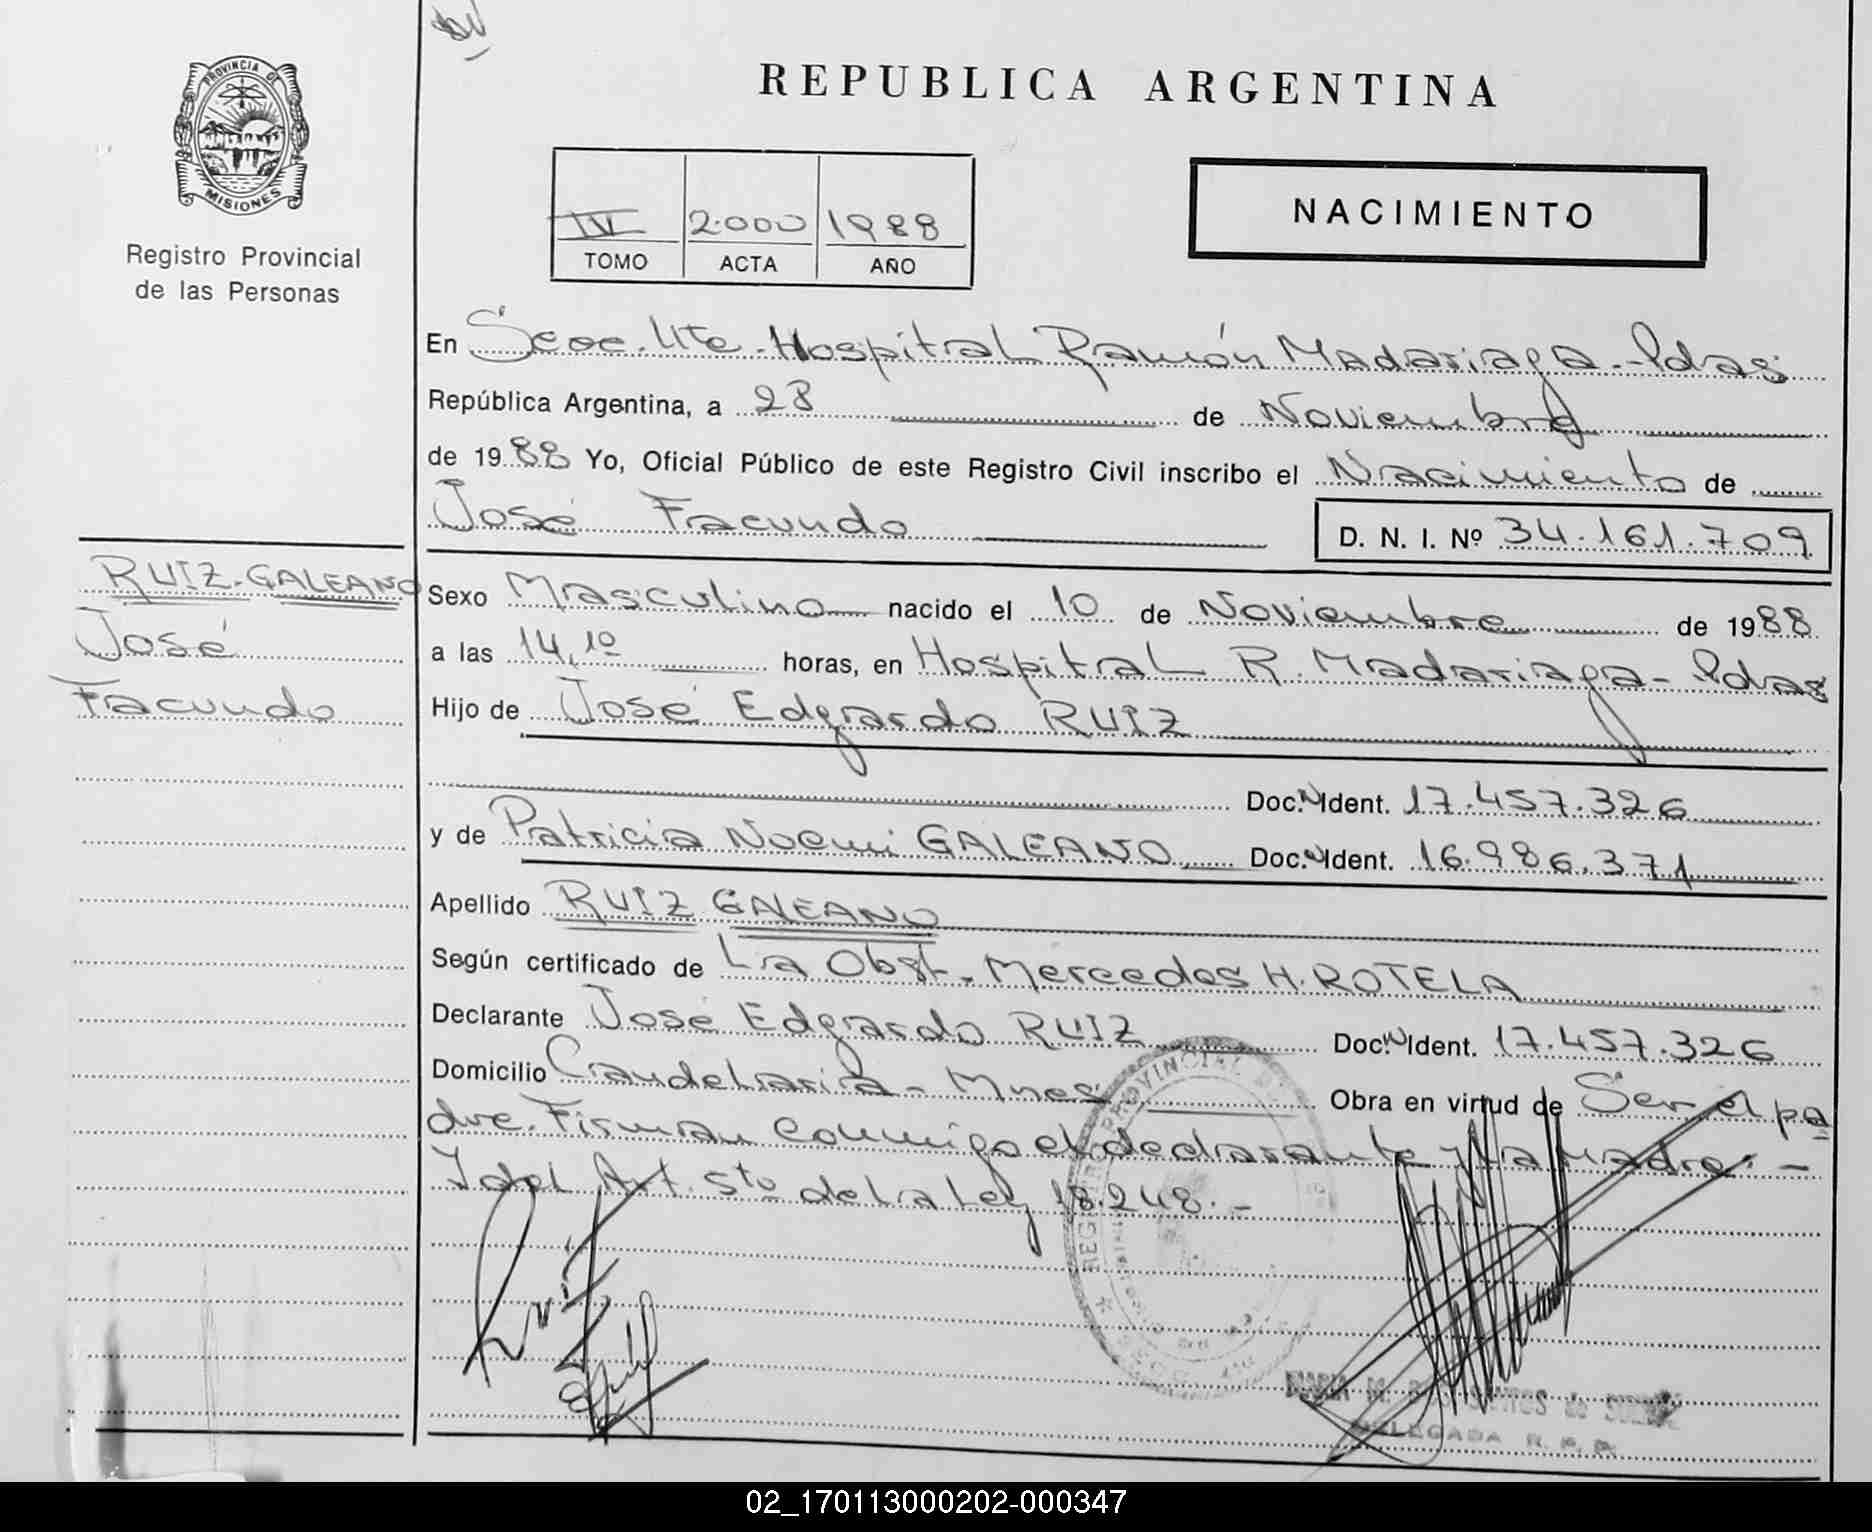 PROVINCIA DE
MISIONES
Registro Provincial
de las Personas
REPUBLICA ARGENTINA
IV 2.000 1988
TOMO ACTA AÑO
NACIMIENTO
En Secc. Hospital Ramón Madariaga - Pdas
República Argentina, a 28 de Noviembre
de 1988 Yo, Oficial Público de este Registro Civil inscribo el Nacimiento de
José Facundo
D. N. I. Nº 34.161.709
RUIZ-GALEANO
José
Facundo
Sexo Masculino nacido el 10 de Noviembre de 1988
a las 14,10 horas, en Hospital R. Madariaga - Pdas
Hijo de José Edgardo RUIZ
Doc. N Ident. 17.457.326
y de Patricia Noemi GALEANO Doc. N Ident. 16.986.371
Apellido RUIZ GALEANO
Según certificado de La Obst. Mercedes H. ROTELA
Declarante José Edgardo RUIZ Doc. N Ident. 17.457.326
Domicilio Candelaria - Mnes Obra en virtud de Ser el pa
dre. Firman conmigo el declarante y la madre. -
del Art. 5to de la Ley 18.248. -
Ruiz
DELEGADA R. P. P.
02_170113000202-000347